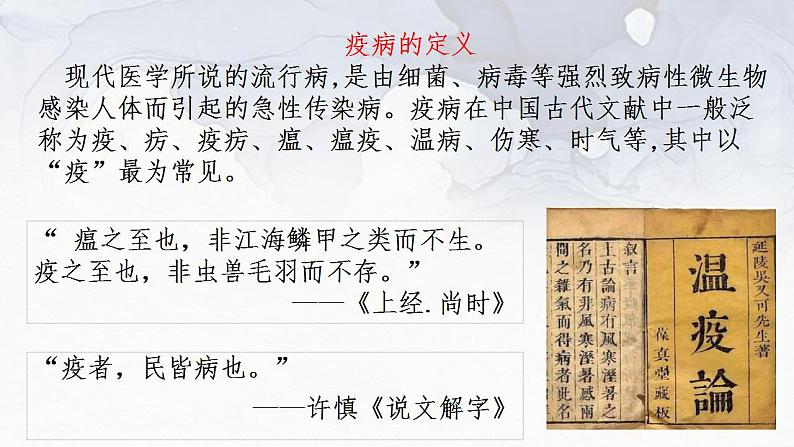 疫病的定义
现代医学所说的流行病,是由细菌、病毒等强烈致病性微生物
感染人体而引起的急性传染病。疫病在中国古代文献中一般泛
称为疫、疠、疫疠、瘟、瘟疫、温病、伤寒、时气等,其中以
“疫”最为常见。
“ 瘟之至也，非江海鳞甲之类而不生。
疫之至也，非虫兽毛羽而不存。”
——《上经.尚时》
“疫者，民皆病也。”
——许慎《说文解字》
延陵吳又可先生著
温疫論
葆真堂藏板
叙言
上古論病有不
名乃有非風寒溼暑感
間之雜氣而得病者其